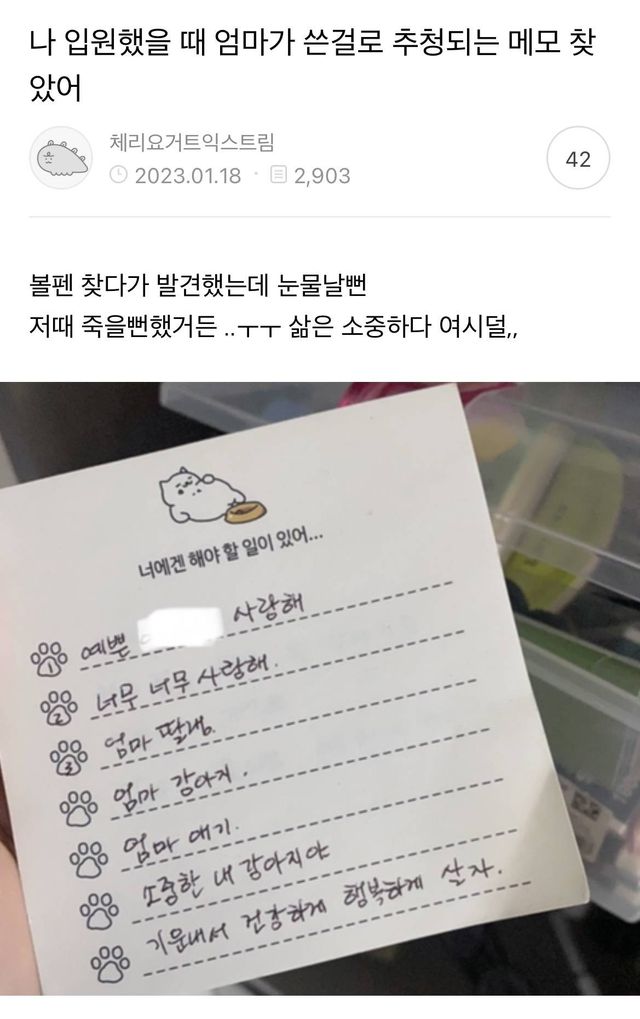 나 입원했을 때 엄마가 쓴걸로 추청되는 메모 찾
았어
체리요거트익스트림
2023.01.18 · 2,903
42
볼펜 찾다가 발견했는데 눈물날뻔
저때 죽을뻔했거든 ..ㅜㅜ 삶은 소중하다 여시덜,,
너에겐 해야 할 일이 있어...
1 예쁜 사랑해
2 너무 너무 사랑해.
3 엄마 딸램.
엄마 강아지.
엄마 애기.
소중한 내 강아지야
기운내서 건강하게 행복하게 살자.